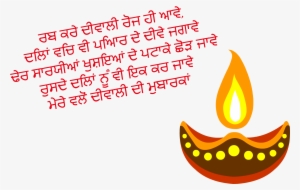 ਰਬ ਕਰੇ ਦੀਵਾਲੀ ਰੋਜ ਹੀ ਆਵੇ.
ਦਲਿਾਂ ਵਚਿ ਵੀ ਪਆਿਰ ਦੇ ਦੀਵੇ ਜਗਾਵੇ
ਢੇਰ ਸਾਰਯੀਆਂ ਖੁਸ਼ਇਆਂ ਦੇ ਪਟਾਕੇ ਛੋੜ ਜਾਵੇ
ਰੁਸਦੇ ਦਲਿਾਂ ਨੂੰ ਵੀ ਇਕ ਕਰ ਜਾਵੇ
ਮੇਰੇ ਵਲੋਂ ਦੀਵਾਲੀ ਦੀ ਮੁਬਾਰਕਾਂ